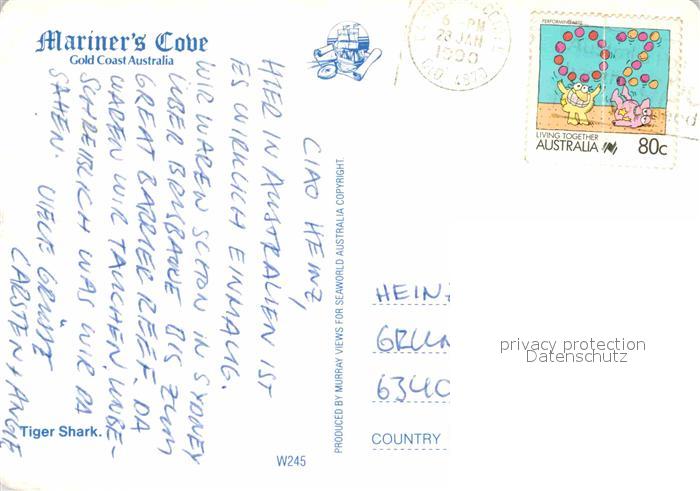 Mariner's Cove
Gold Coast Australia
CIAO HEINZ,
HIER IN AUSTRALIEN IST
ES WIRKLICH EINMALIG.
WIR WAREN SCHON IN SYDNEY
ÜBER BRISBANE BIS ZUM
GREAT BARRIER REEF. DA
WAREN WIR TAUCHEN. UNBE-
SCHREIBLICH WAS WIR DA
SAHEN. VIELE GRÜSSE
CARSTEN + ANGIE
Tiger Shark.
W245
PRODUCED BY MURRAY VIEWS FOR SEAWORLD AUSTRALIA COPYRIGHT.
6 - PM
23 JAN
1990
QLD 4870
PERFORMING ARTS
LIVING TOGETHER
AUSTRALIA 80c
HEIN
GRUN
6340
COUNTRY
privacy protection
Datenschutz